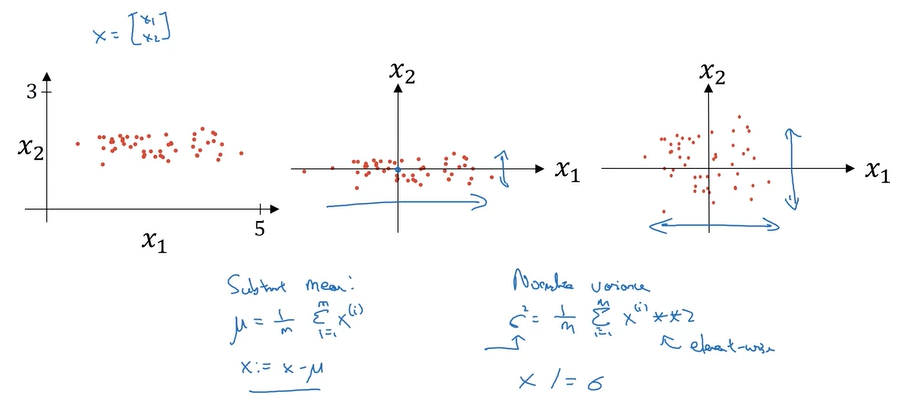 x = [x1 x2]
3
x2
x1
5
x2
x1
x2
x1
Subtract mean:
μ = 1/m Σ i=1 m x(i)
x := x - μ
Normalize variance
σ² = 1/m Σ i=1 m x(i) **2
element-wise
x /= σ